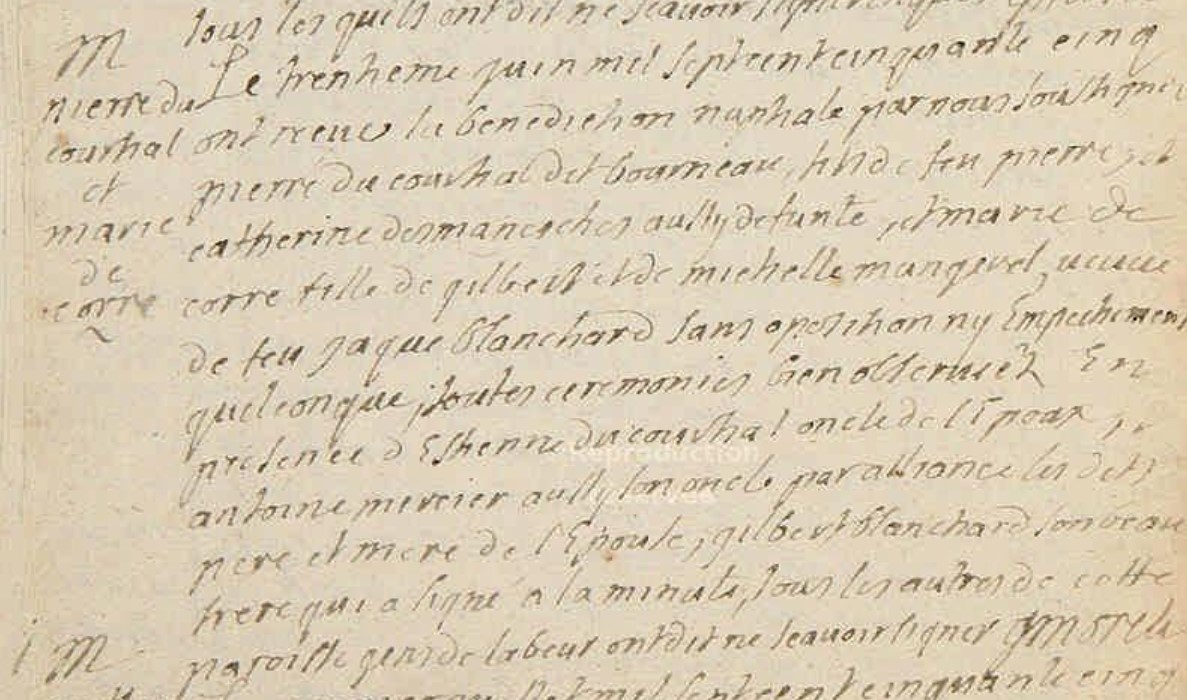 tous les quels ont dit ne scavoir signer
M
pierre du
courtial
et
marie
de
corre
Le trentieme juin mil sept cent cinquante cinq
ont receu la benediction nuptiale par nous soussigné
pierre du courtial dit bourneau, fils de feu pierre, et
catherine desmaneches aussy defunte, et marie de
corre fille de gilbert et de michelle mangerel, veuve
de feu jaque blanchard sans oposition ny Empechement
quelconque, toutes ceremonies bien observeés En
presence d'Estienne du courtial oncle de l'Epoux,
antoine mercier aussy son oncle par alliance les dits
pere et mere de l'Epouse, gilbert blanchard son beau
frere qui a signé a la minute, tous les autres de cette
paroisse gens de labeur ont dit ne scavoir signer
M
mil sept cent cinquante cinq
Reproduction